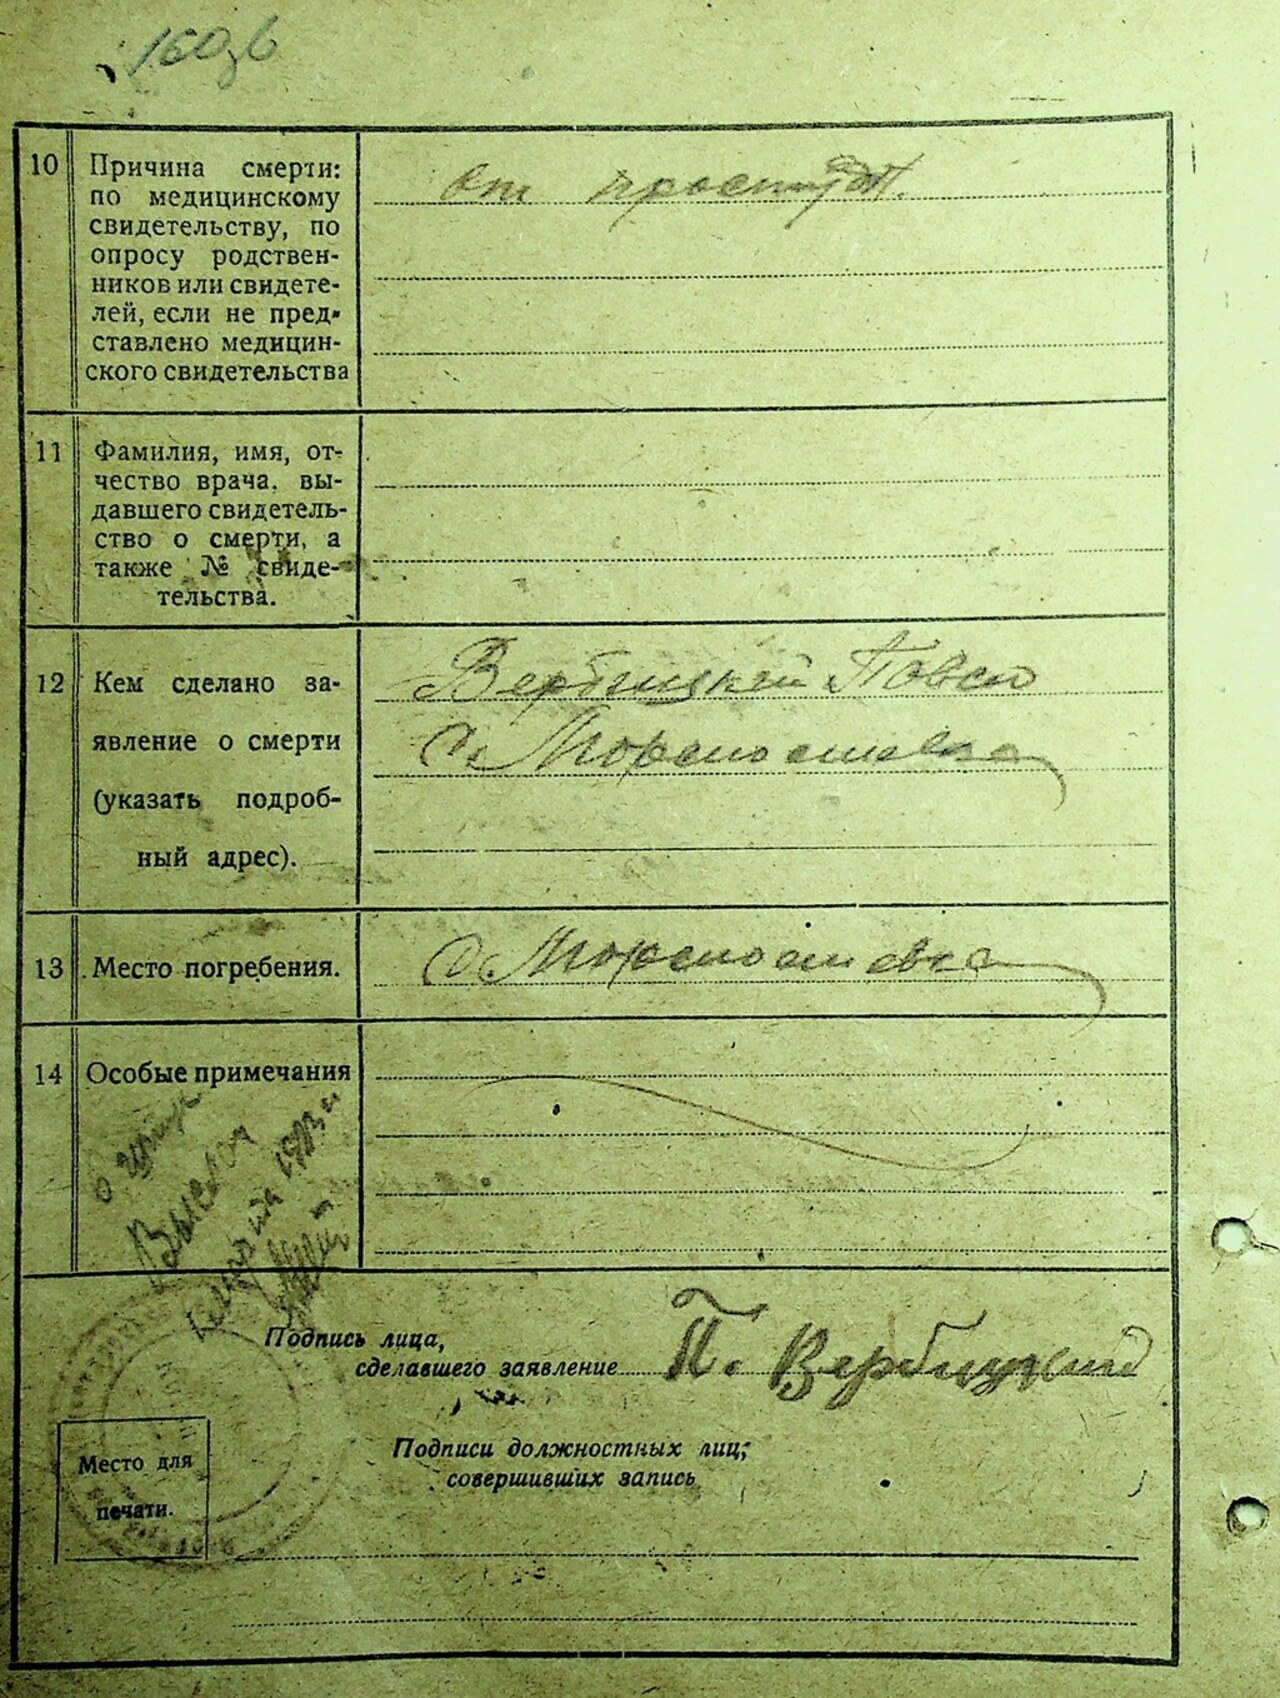 10 Причина смерти:
по медицинскому
свидетельству, по
опросу родствен-
ников или свидете-
лей, если не пред-
ставлено медицин-
ского свидетельства
от простуды
11 Фамилия, имя, от-
чество врача, вы-
давшего свидетель-
ство о смерти, а
также № свиде-
тельства.
12 Кем сделано за-
явление о смерти
(указать подроб-
ный адрес).
Вербицкий Павел
с.
13 Место погребения.
с.
14 Особые примечания
Подпись лица,
сделавшего заявление П. Вербицкий
Подписи должностных лиц,
совершивших запись
Место для
печати.